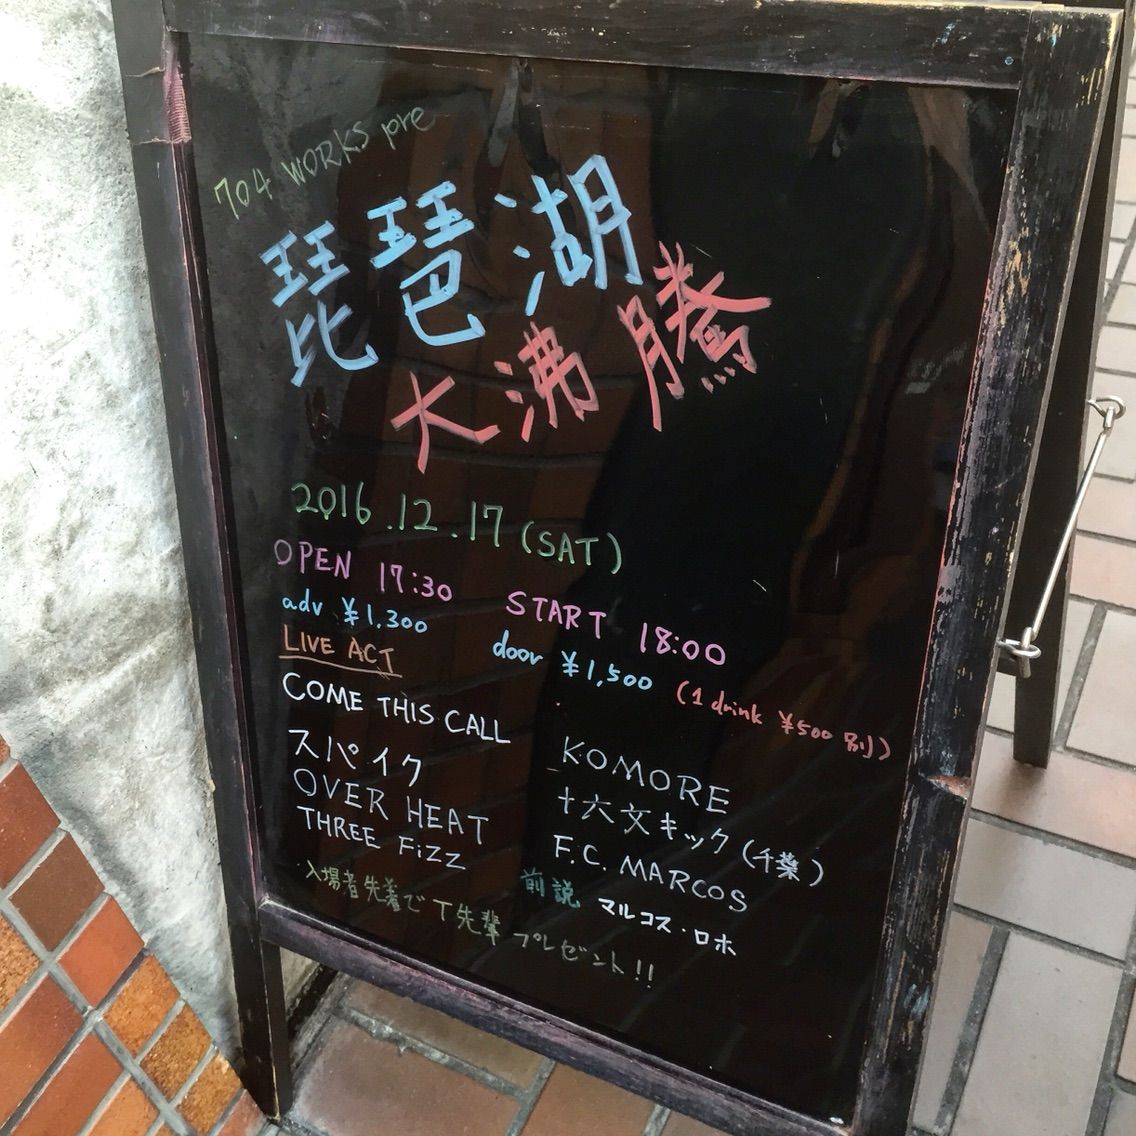 704 WORKS pre
琵琶湖
大沸騰
2016.12.17 (SAT)
OPEN 17:30 START 18:00
adv ¥1,300 door ¥1,500 (1 drink ¥500 別)
LIVE ACT
COME THIS CALL
スパイク
OVER HEAT
THREE FiZZ
KOMORE
十六文キック (千葉)
F.C. MARCOS
前説 マルコス・ロホ
入場者先着でT先輩プレゼント!!